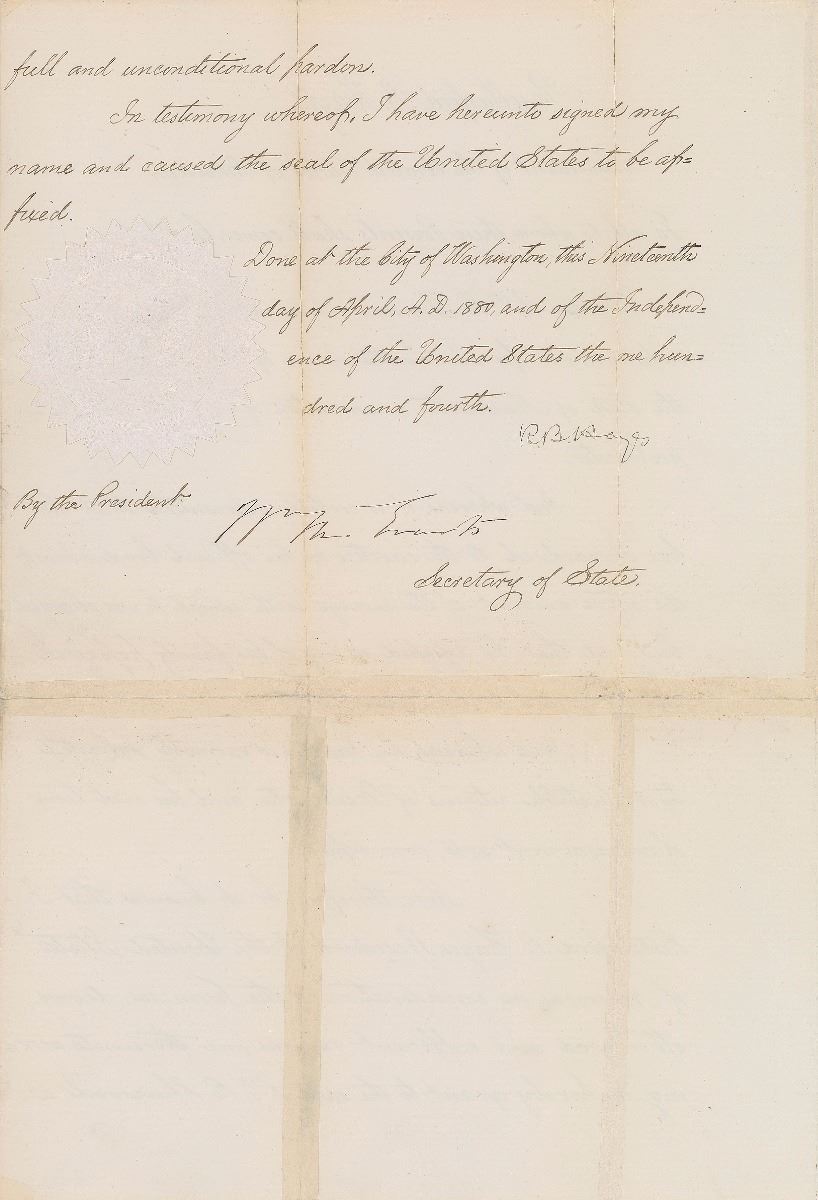 full and unconditional pardon.
In testimony whereof, I have hereunto signed my
name and caused the seal of the United States to be af=
fixed.
Done at the City of Washington, this Nineteenth
day of April, A. D. 1880, and of the Independ=
ence of the United States the one hun=
dred and fourth.
R. B. Hayes
By the President:
Wm. M. Evarts
Secretary of State.